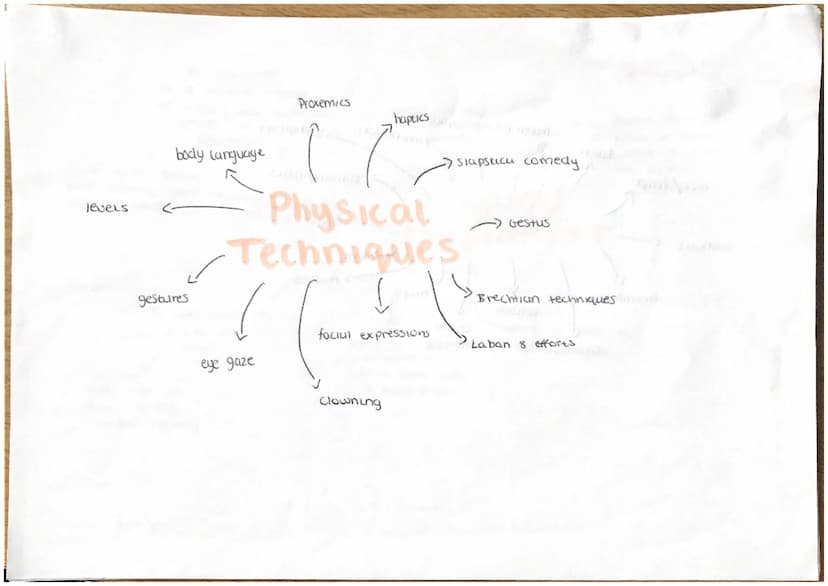 Proxemics
haptics
body language
slapstick comedy
levels
Physical
Techniques
Gestus
gestures
Brechtian techniques
facial expressions
Laban 8 efforts
eye gaze
clowning